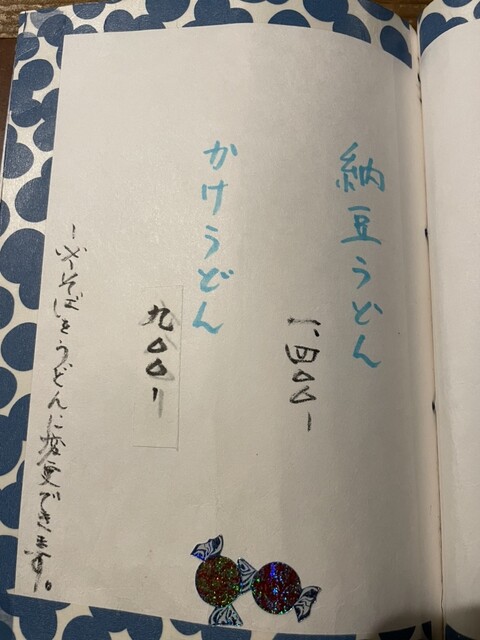 納豆うどん
一、四〇〇ー
かけうどん
九〇〇ー
そばをうどんに変更できます。